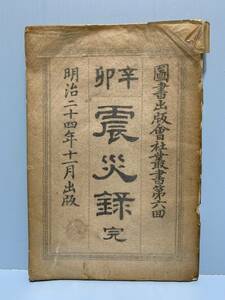 辛卯
圖書出版會社叢書第六回
震災録 完
明治二十四年十二月出版